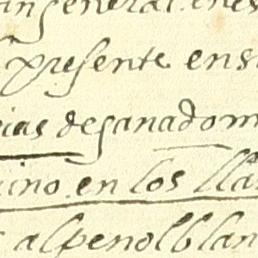 en general enes
presente ens
cias deganadom
uino en los lla
alpenolblan